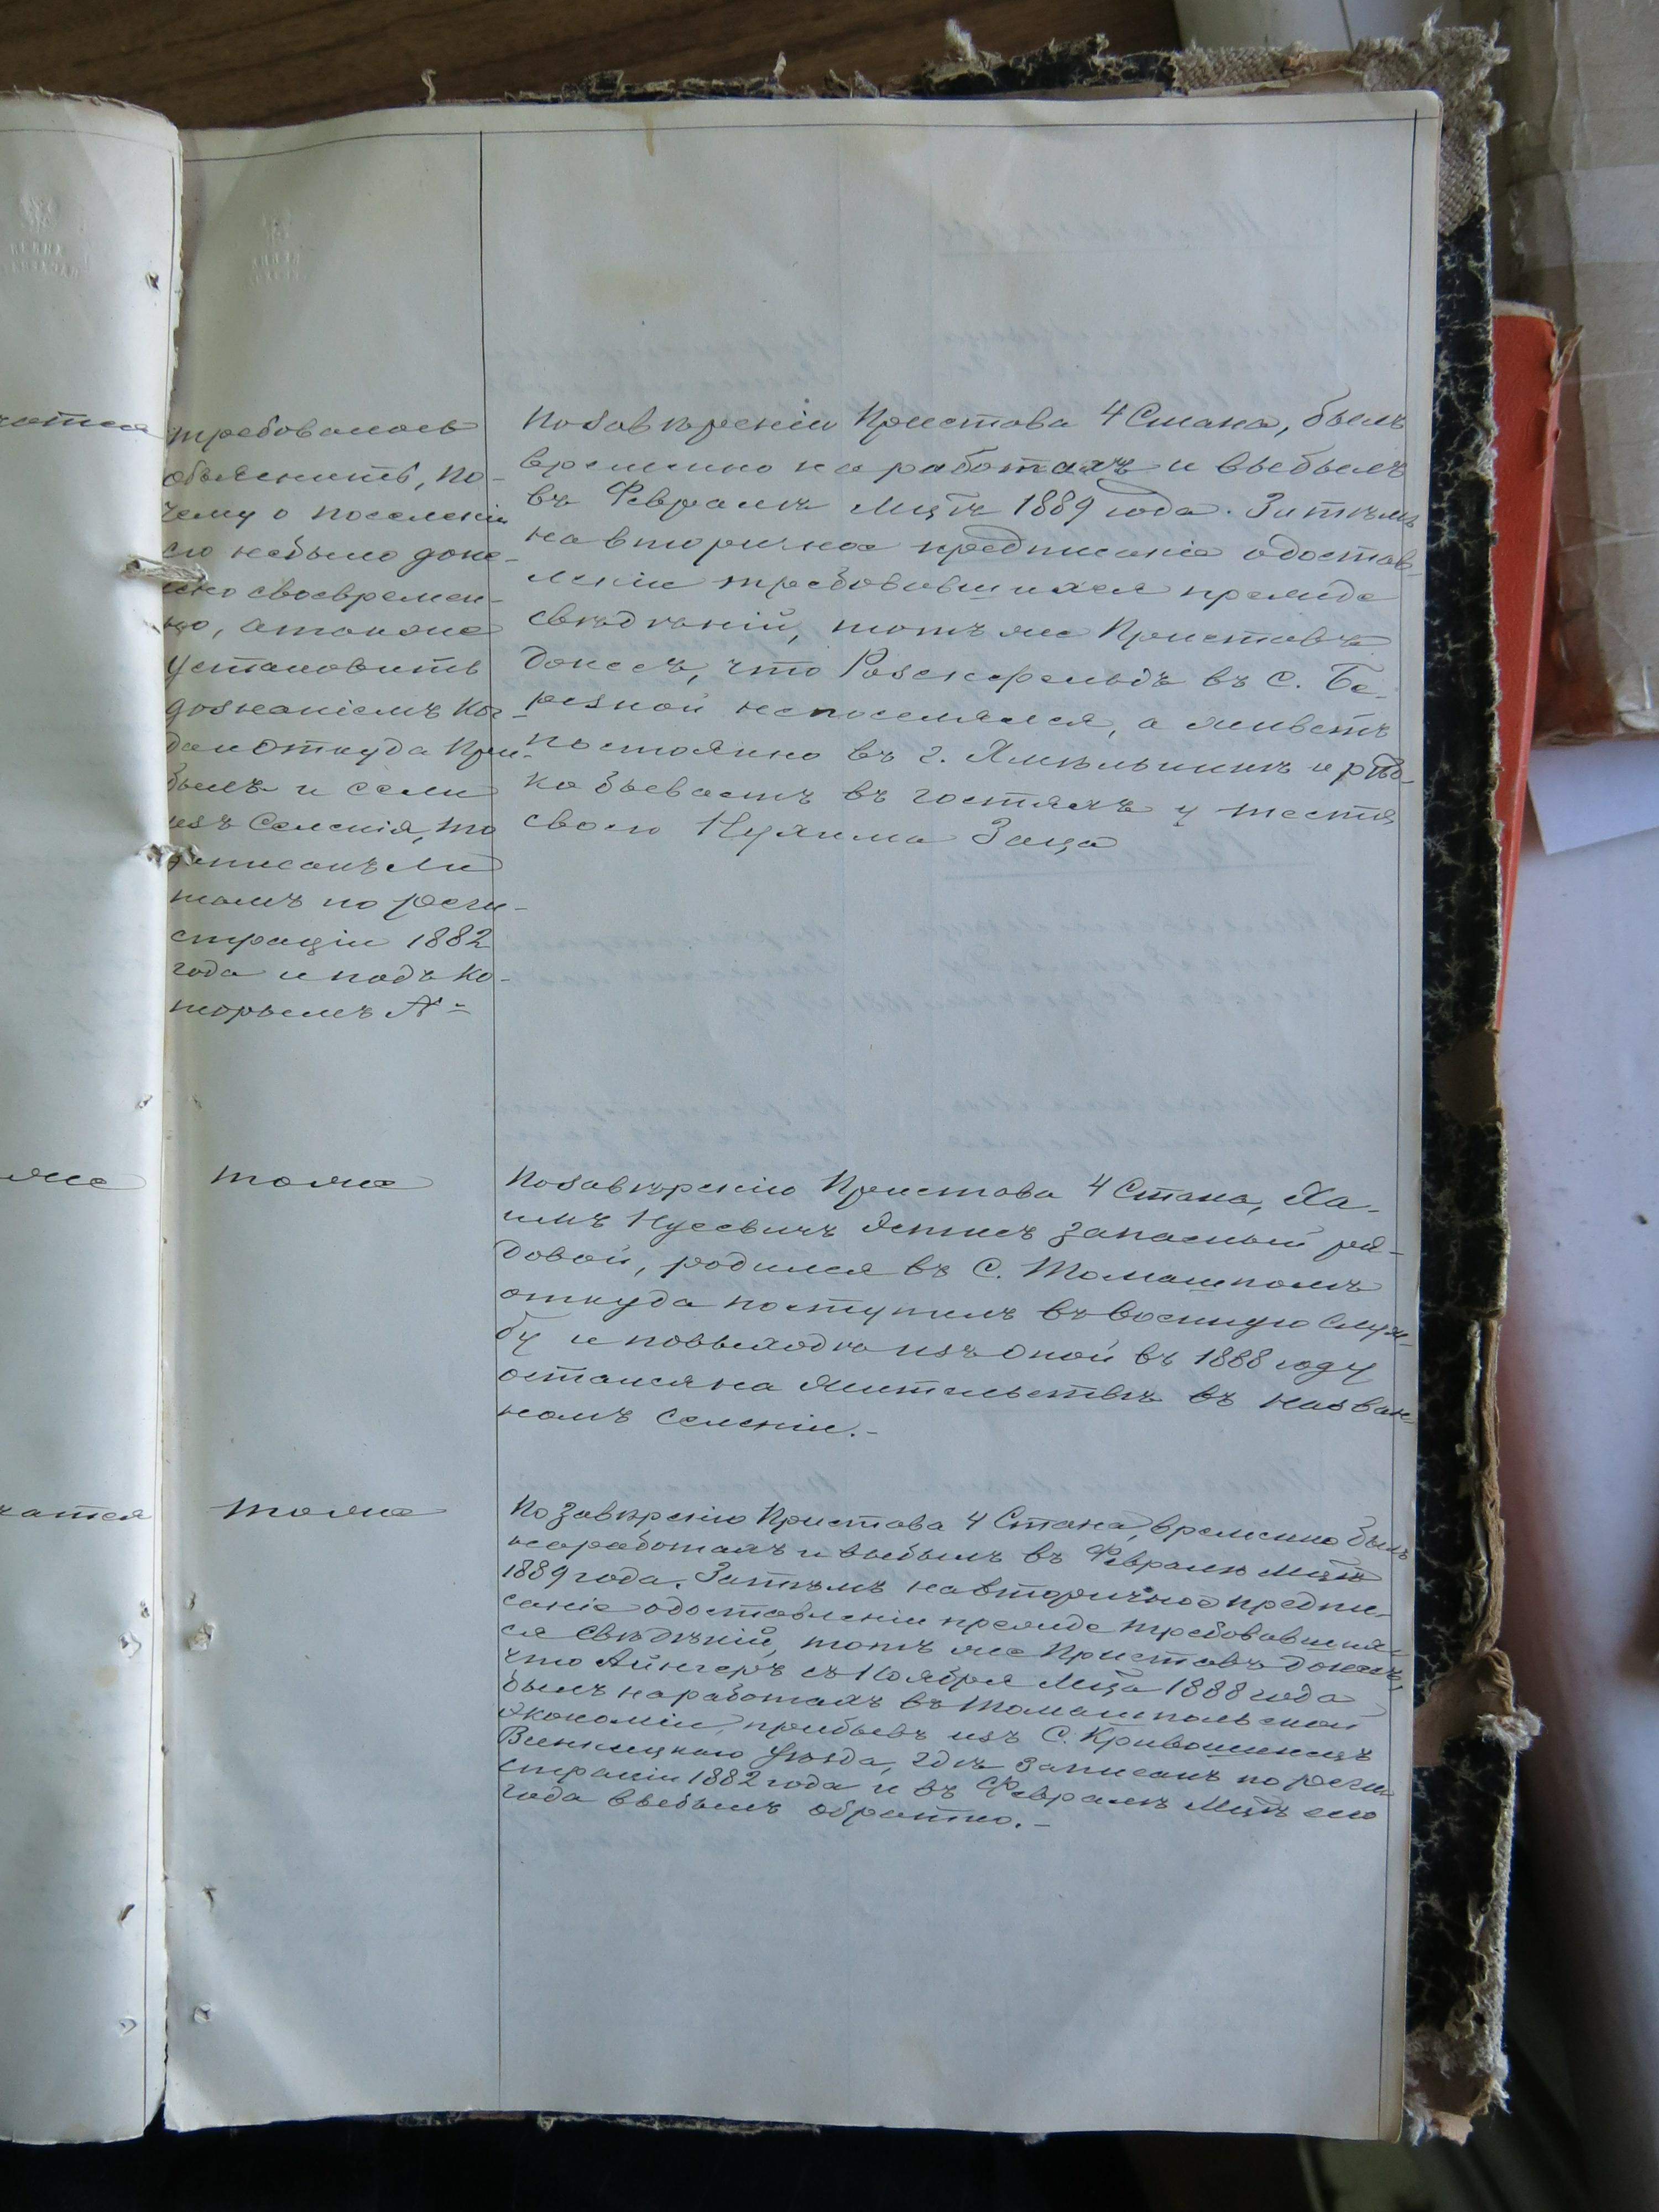 требовалось
объяснить, по-
чему о поселеніи
его небыло доне-
сено своевремен-
но, атакже
установить
дознаніемъ ког-
да и откуда при-
былъ и если
изъ Селенія, то
записанъ ли
тамъ по реги-
страціи 1882
года и подъ ко-
торымъ №
Позавѣренію Пристава 4 Стана, былъ
временно на работахъ и выбылъ
въ Февралѣ Мцѣ 1889 года. Затѣмъ
навторичное предписаніе одостав-
леніи требовавшихся прежде
свѣдѣній, тотъ же Приставъ
донесъ, что Розенфельдъ въ С. Бе-
резной непоселялся, а живетъ
постоянно въ г. Хмѣльникѣ и рѣд-
ко бываетъ въ гостяхъ у тестя
своего Нухима Заца
же
тоже
Позавѣренію Пристава 4 Стана, Ха-
имъ Нусевичъ запасный ря-
довой, родился въ С. Томашполѣ
откуда поступилъ въ военную служ-
бу и повыходѣ изъ оной въ 1888 году
остался на жительствѣ въ назван-
номъ селеніи.-
тоже
По завѣренію Пристава 4 Стана, временно былъ
наработахъ и выбылъ въ Февралѣ Мцѣ
1889 года. Затѣмъ навторичное предпи-
саніе одоставленіи прежде требовавших-
ся свѣдѣній, тотъ же Приставъ донесъ,
что Айнгеръ съ Ноября Мца 1888 года
былъ наработахъ въ Томашпольской
Экономіи, прибывъ изъ С. Кривошеинецъ
Винницкаго Уѣзда, гдѣ записанъ по реги-
страціи 1882 года и въ Февралѣ Мцѣ сего
года выбылъ обратно.-